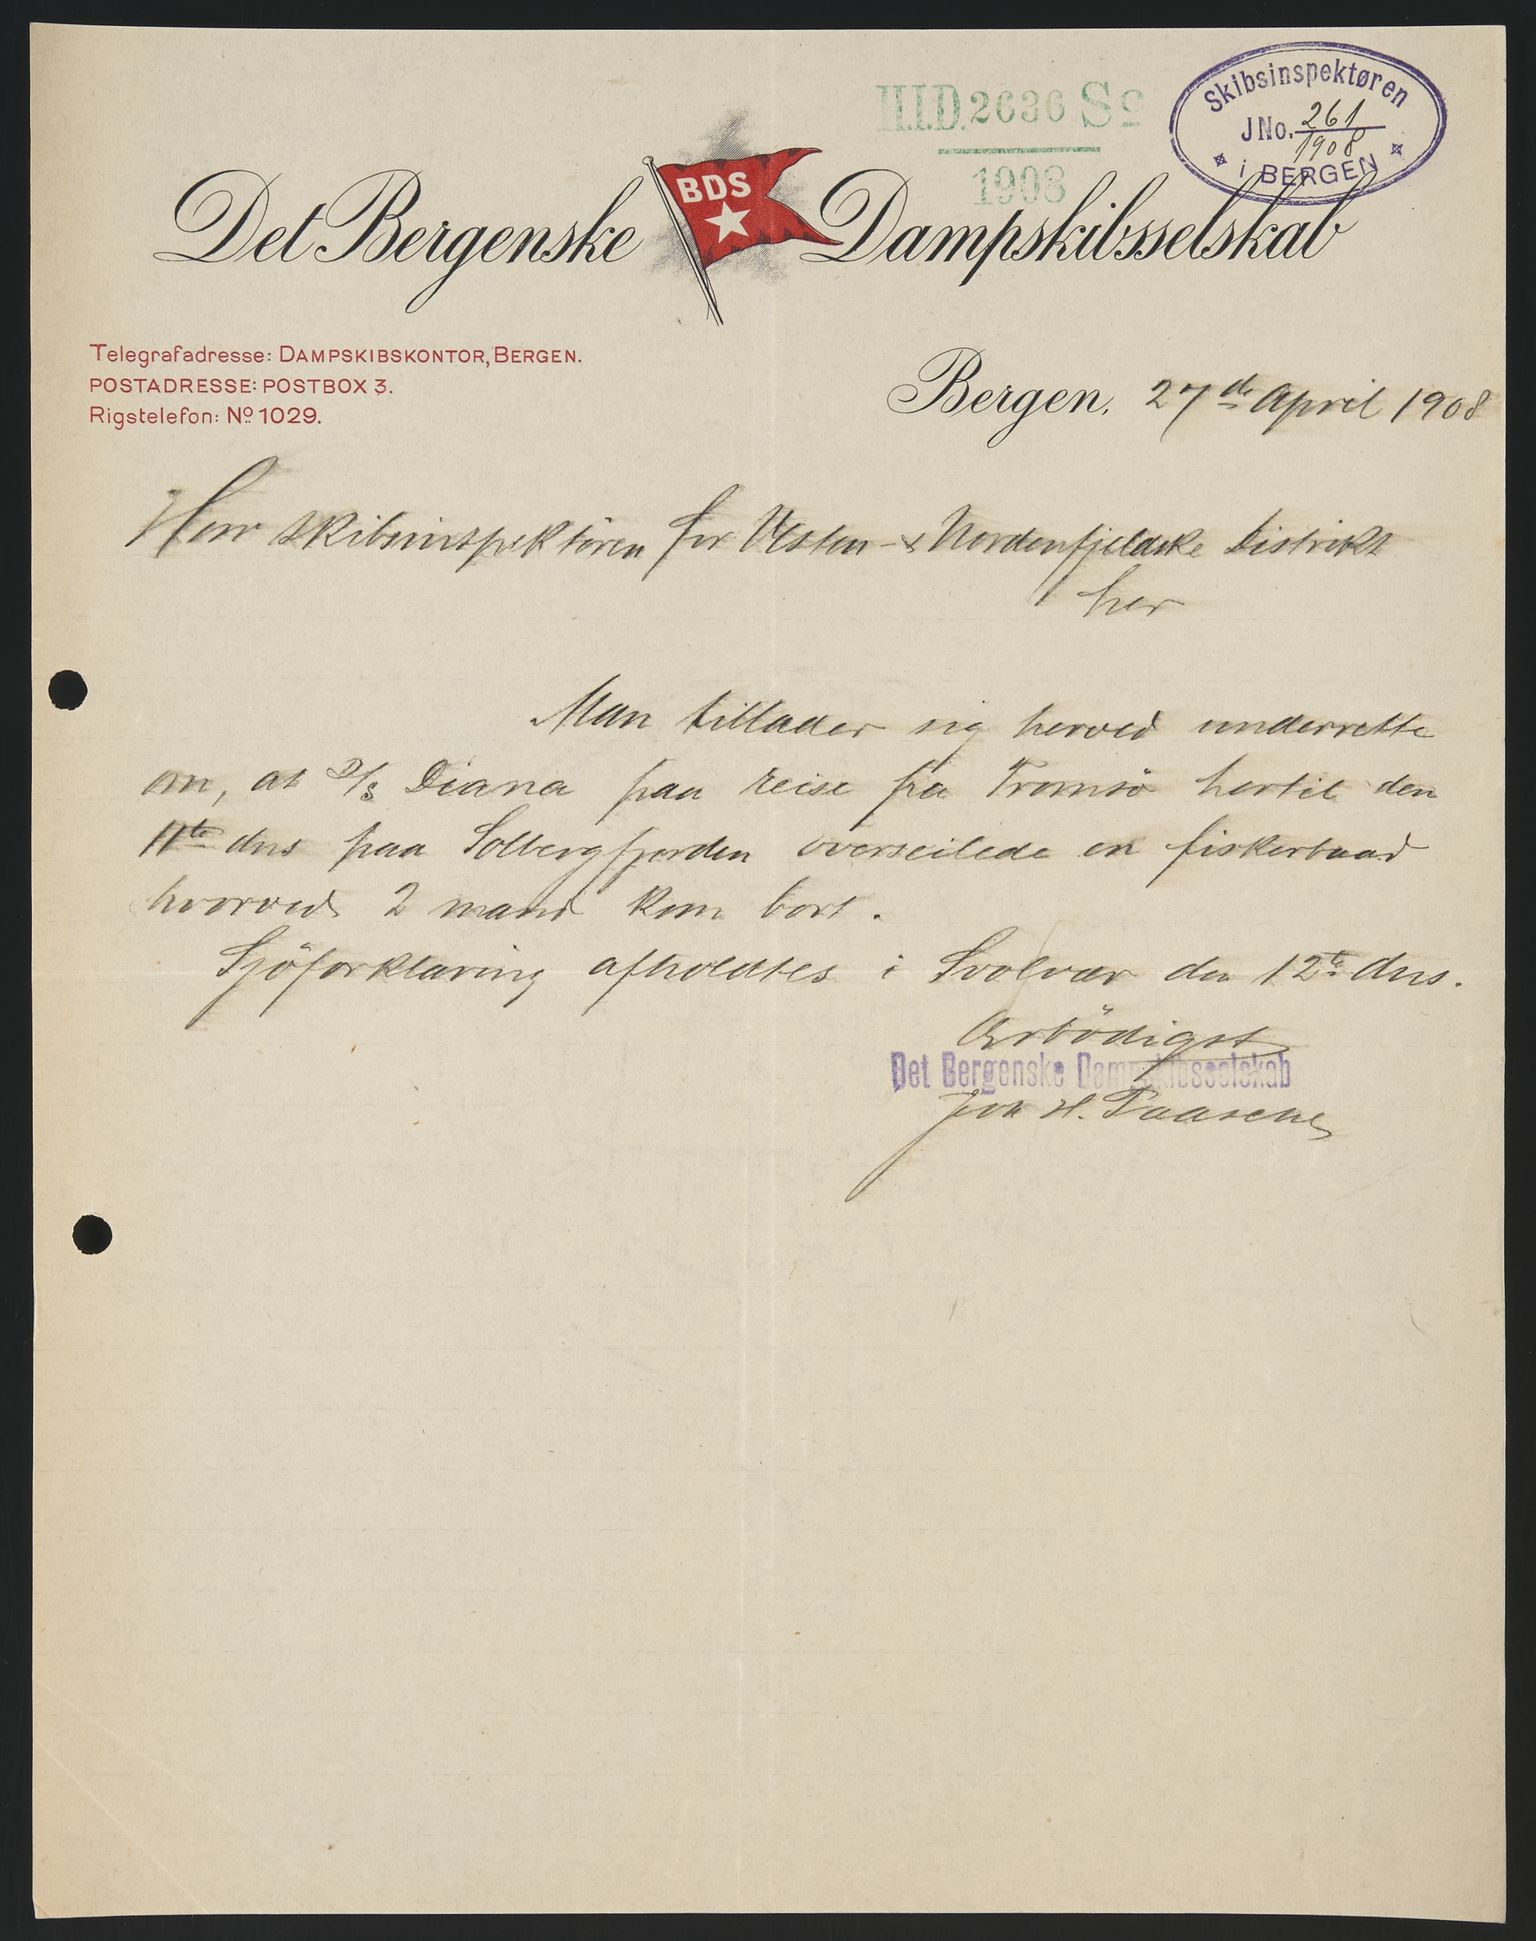 H.I.D. 2636 Sc
1908
Skibsinspektøren
J No. 261
1908
i BERGEN
Det Bergenske BDS Dampskibsselskab
Telegrafadresse: DAMPSKIBSKONTOR, BERGEN.
POSTADRESSE: POSTBOX 3.
Rigstelefon: No 1029.
Bergen, 27de April 1908
Herr Skibsinspektören for Vesten- & Nordenfjeldske Distrikt
her
Man tillader sig herved underrette
om, at D/S Diana paa reise fra Tromsö hertil den
11te dns paa Solbergfjorden overseilede en fiskerbaad
hvorved 2 mand kom bort.
Sjöforklaring afholdtes i Svolvær den 12te dns.
Ærbödigst
Det Bergenske Dampskibsselskab
Joh H. Paasche